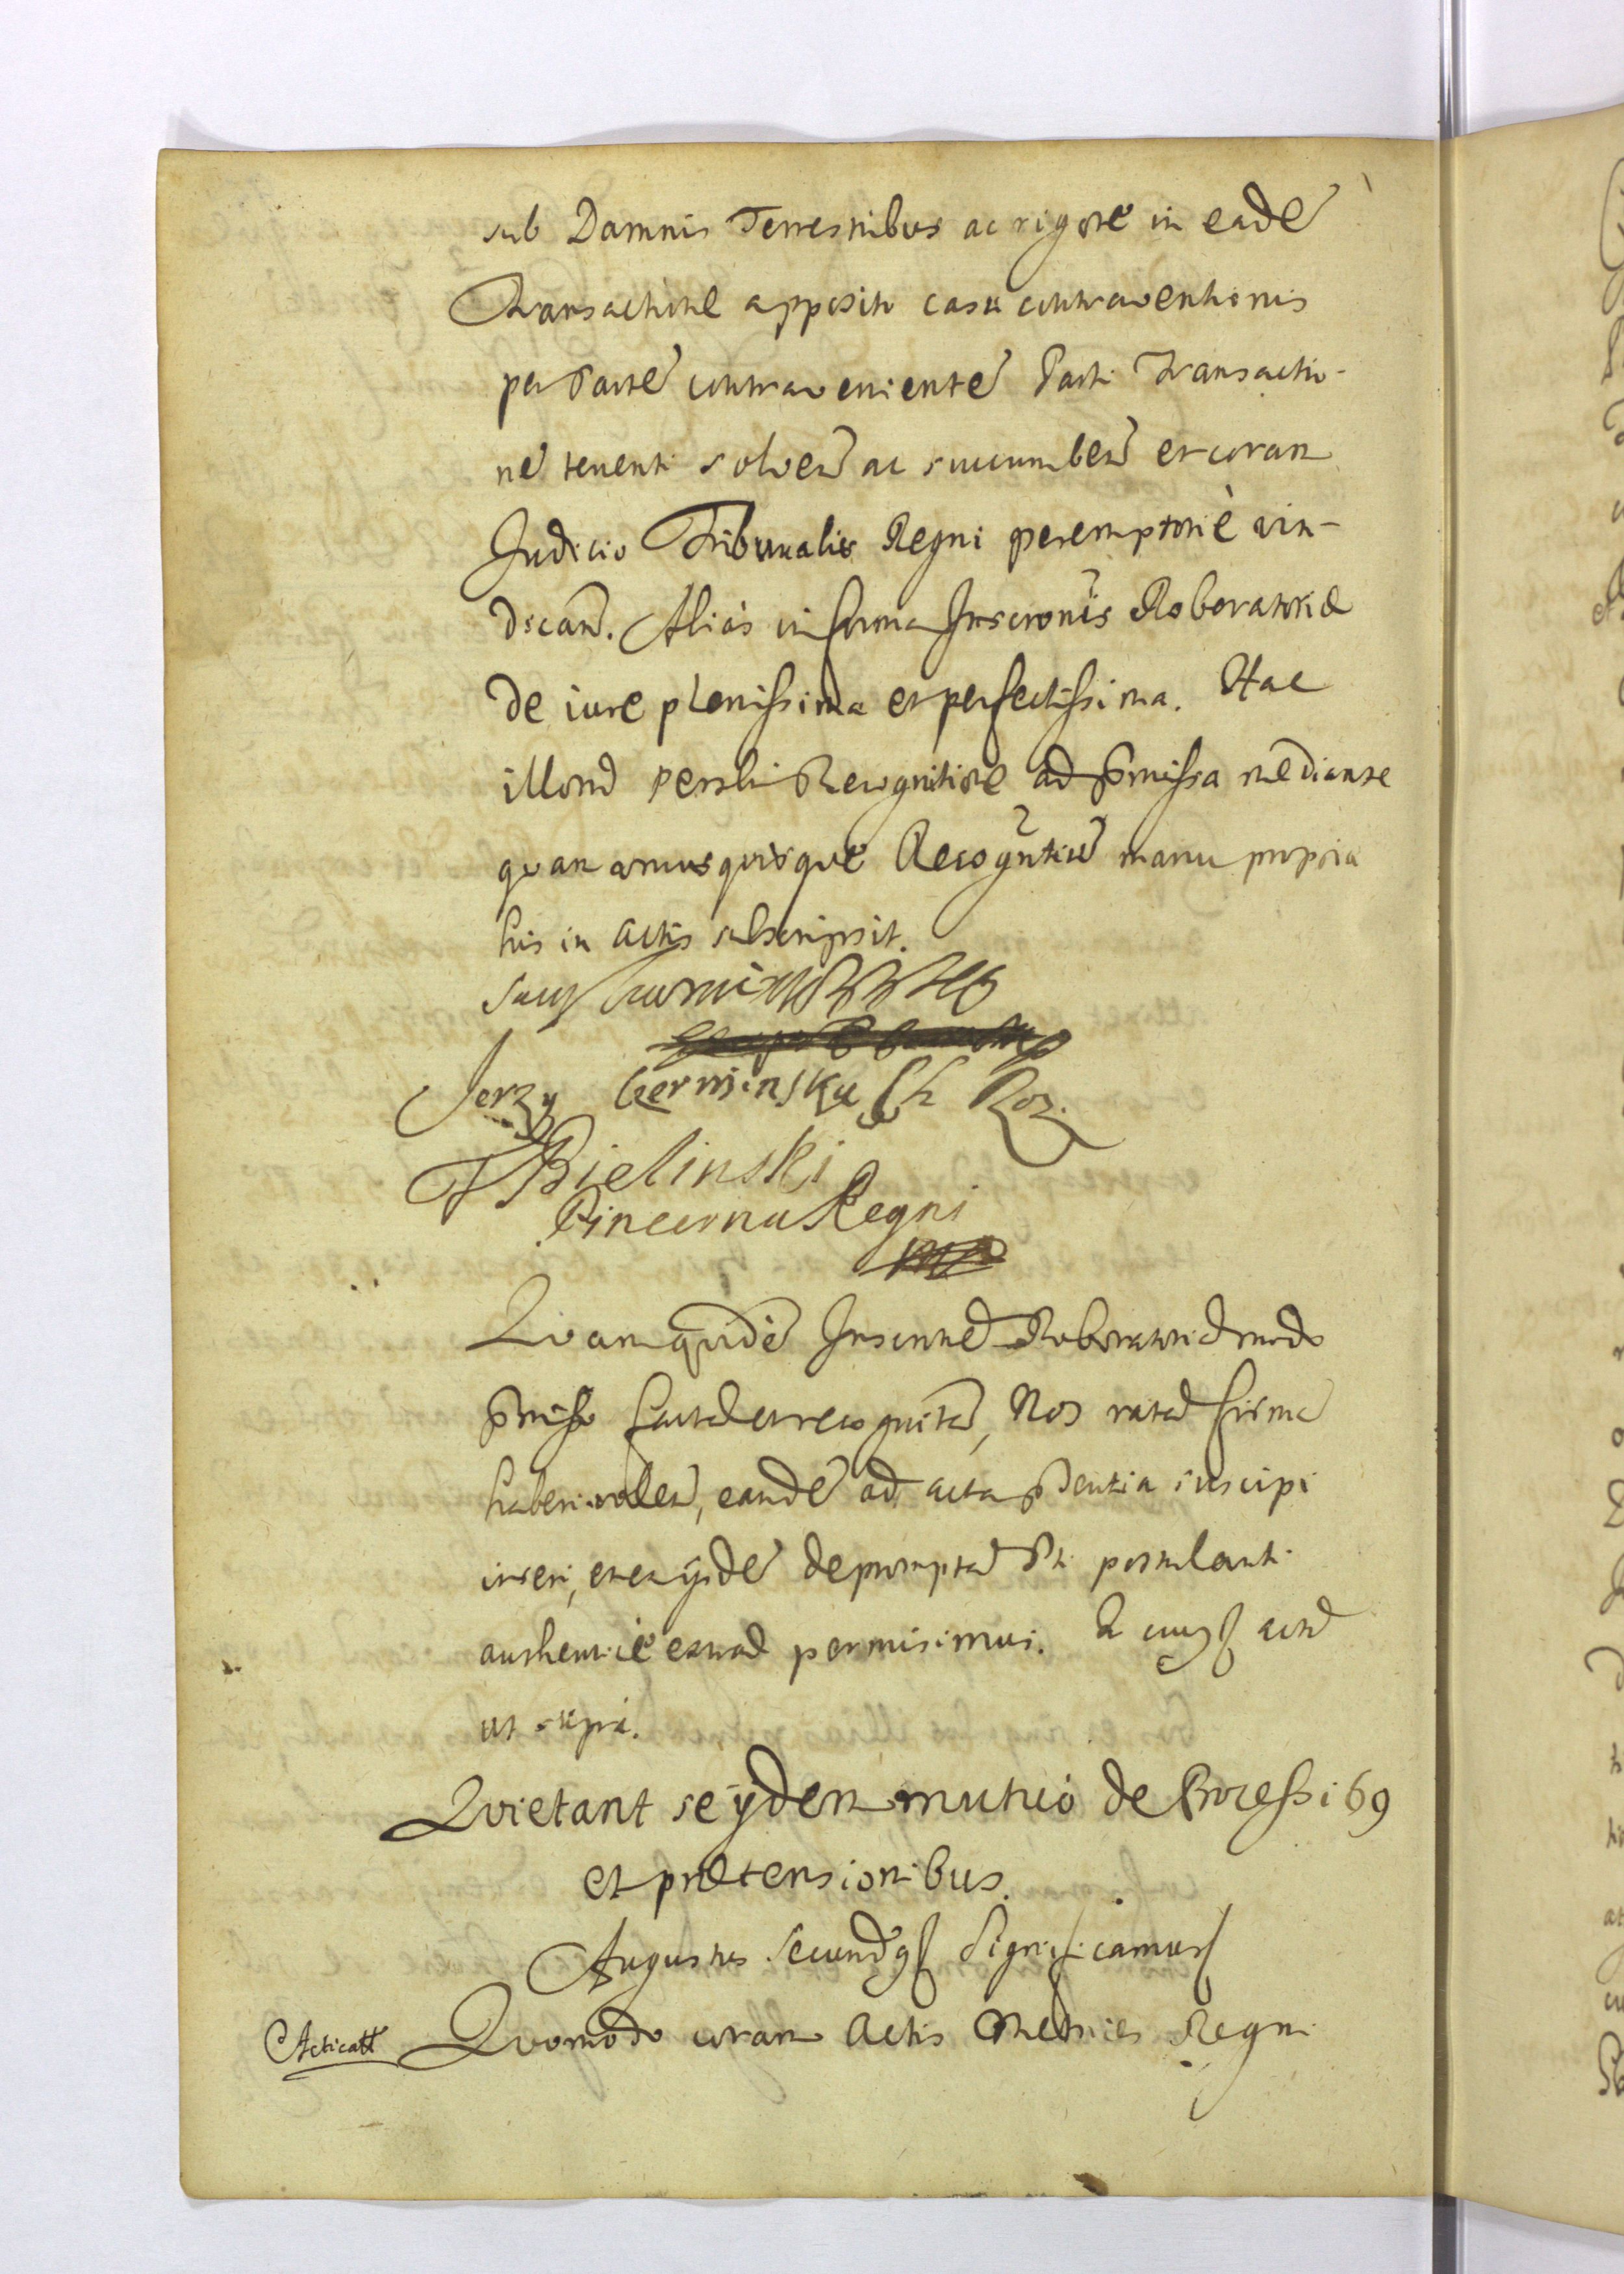 sub Damnis Terrestribus ac rigore in eadē
Transactione apposito casu contraventionis
per Partē contravenientē Parti Transactio-
nē tenenti solvend ac succumbend et coram
Judicio Tribunalis Regni peremptoriè vin-
dicand. Alias in forma Inscronis Roboratoriæ
de iure plenissima et perfectissima. Hac
illorū persli Recognitione ad pmissa mediante
quam unusquisque Recogntiū manu propria
his in actis subscripsit.
Jerzy Czerminsky
Bielinski
Pincerna Regni
Quam quidē Inscrnē Roboratoriā modo
pmisso factā et recognitā, Nos ratā firmā
haberi volen, eandē ad acta pſentia suscipi
inseri, et ex ijsdē depromptā Pti postulanti
authenticè extrad permisimus. In cuius actū
ut supra.
Quietant se ÿdem mutuò de Processib9
et prætensionibus.
Augustus Secundus Significamus
Acticatt Quomodo coram Actis Metrices Regni